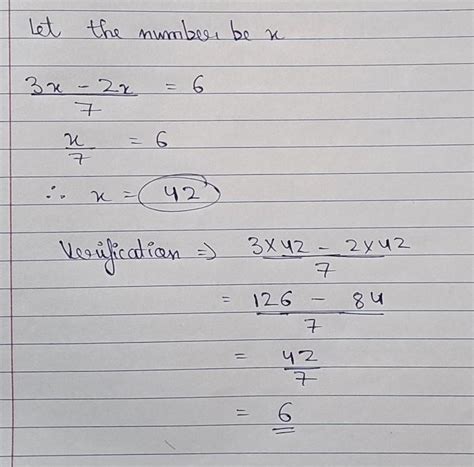 Let the number be x
3x - 2x / 7 = 6
x / 7 = 6
∴ x = 42
Verification ⇒ 3x42 - 2x42 / 7
= 126 - 84 / 7
= 42 / 7
= 6